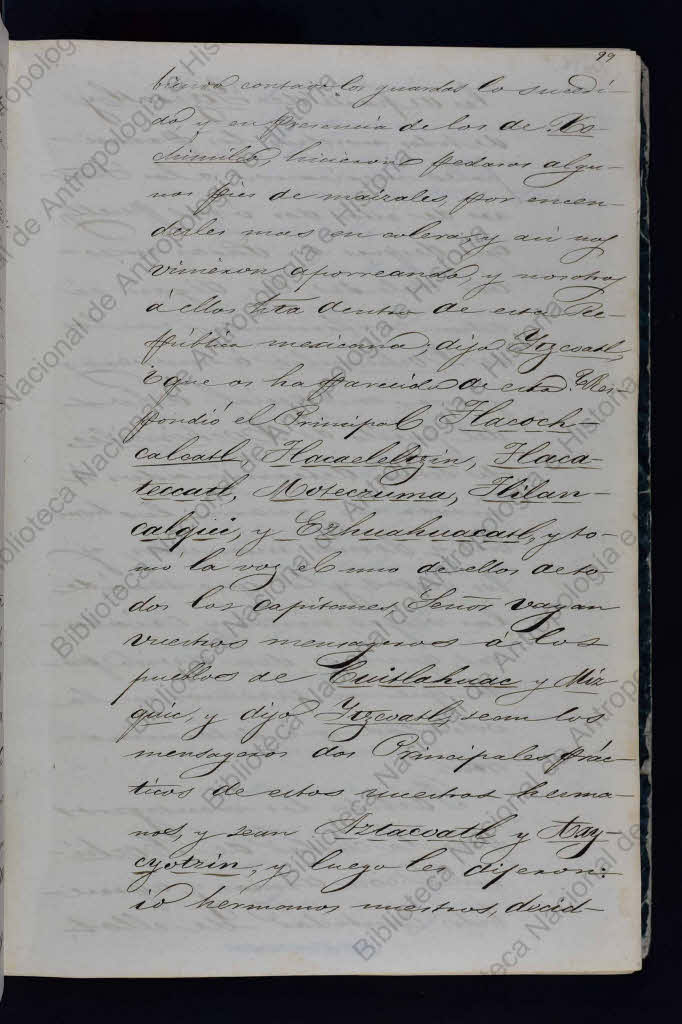 99
bieron contar los guardas lo sucedi-
do y en presencia de los de Xo-
chimilco, hicieron pedasos algu-
nos pies de maizales, por encen-
derles mas en colera, y asi nos
vinieron aporreando, y nosotros
á ellos hta dentro de esta Re-
pública mexicana; dijo Yzcoatl,
que os ha parecido de esta? Res-
pondió el Principal Tlacoch-
calcatl, Tlacaeleltzin, Tlaca-
teccatl, Moteczuma, Tlilan-
calqui, y Ezhuahuacatl, y to-
mó la voz el uno de ellos de to-
dos los capitanes, Señor vayan
vuestros mensageros á los
pueblos de Cuitlahuac y Miz-
quic, y dijo Yzcoatl, sean los
mensageros dos Principales prác-
ticos de estos nuestros herma-
nos, y sean Aztacoatl y Axy-
cyotzin, y luego les dijeron:
id hermanos nuestros, decid-
Biblioteca Nacional de Antropología e Historia